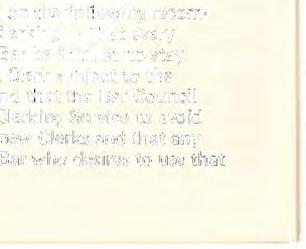 on the following recom-
that every
Bar be entitled to stay
Clerk subject to the
nd that the Bar Council
Clerking Service to avoid
new Clerks and that any
Bar who desires to use that